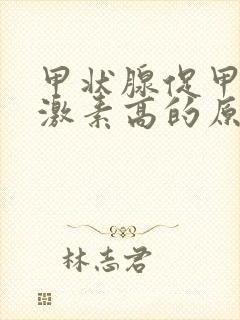 甲状腺促甲
激素高的原
林志君